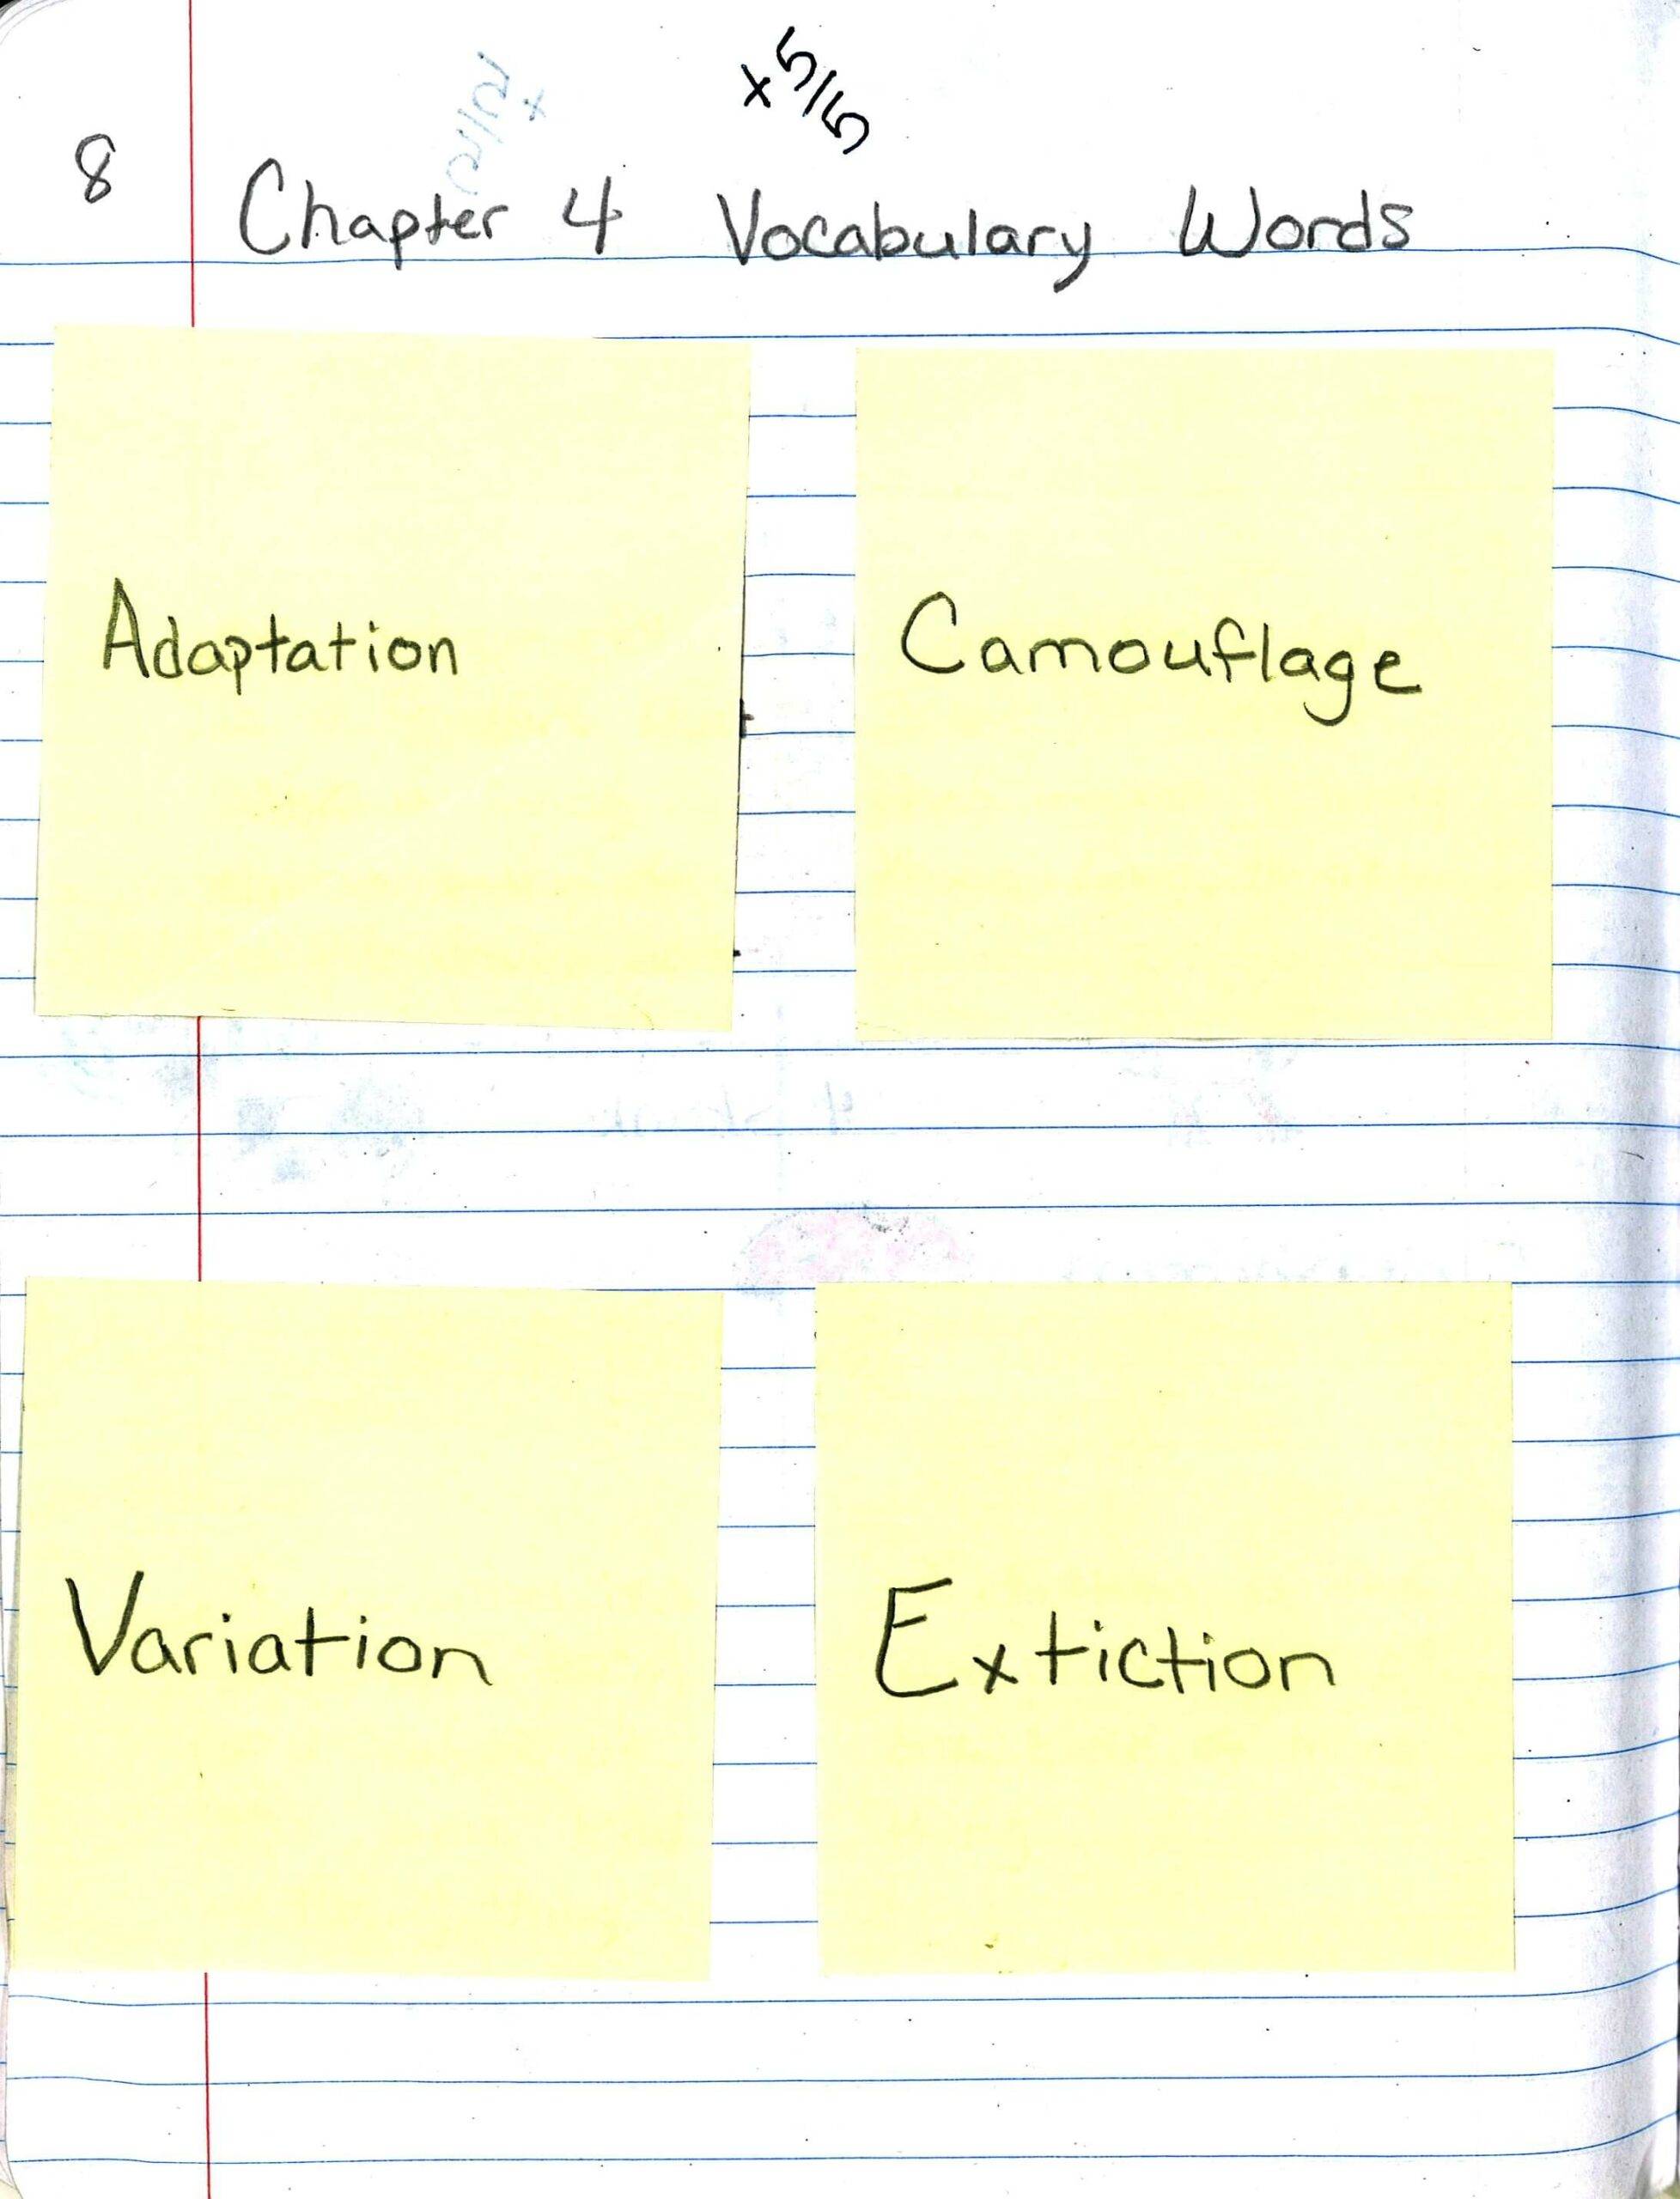 +5/5
8 Chapter 4 Vocabulary Words
Adaptation
Camouflage
Variation
Extiction